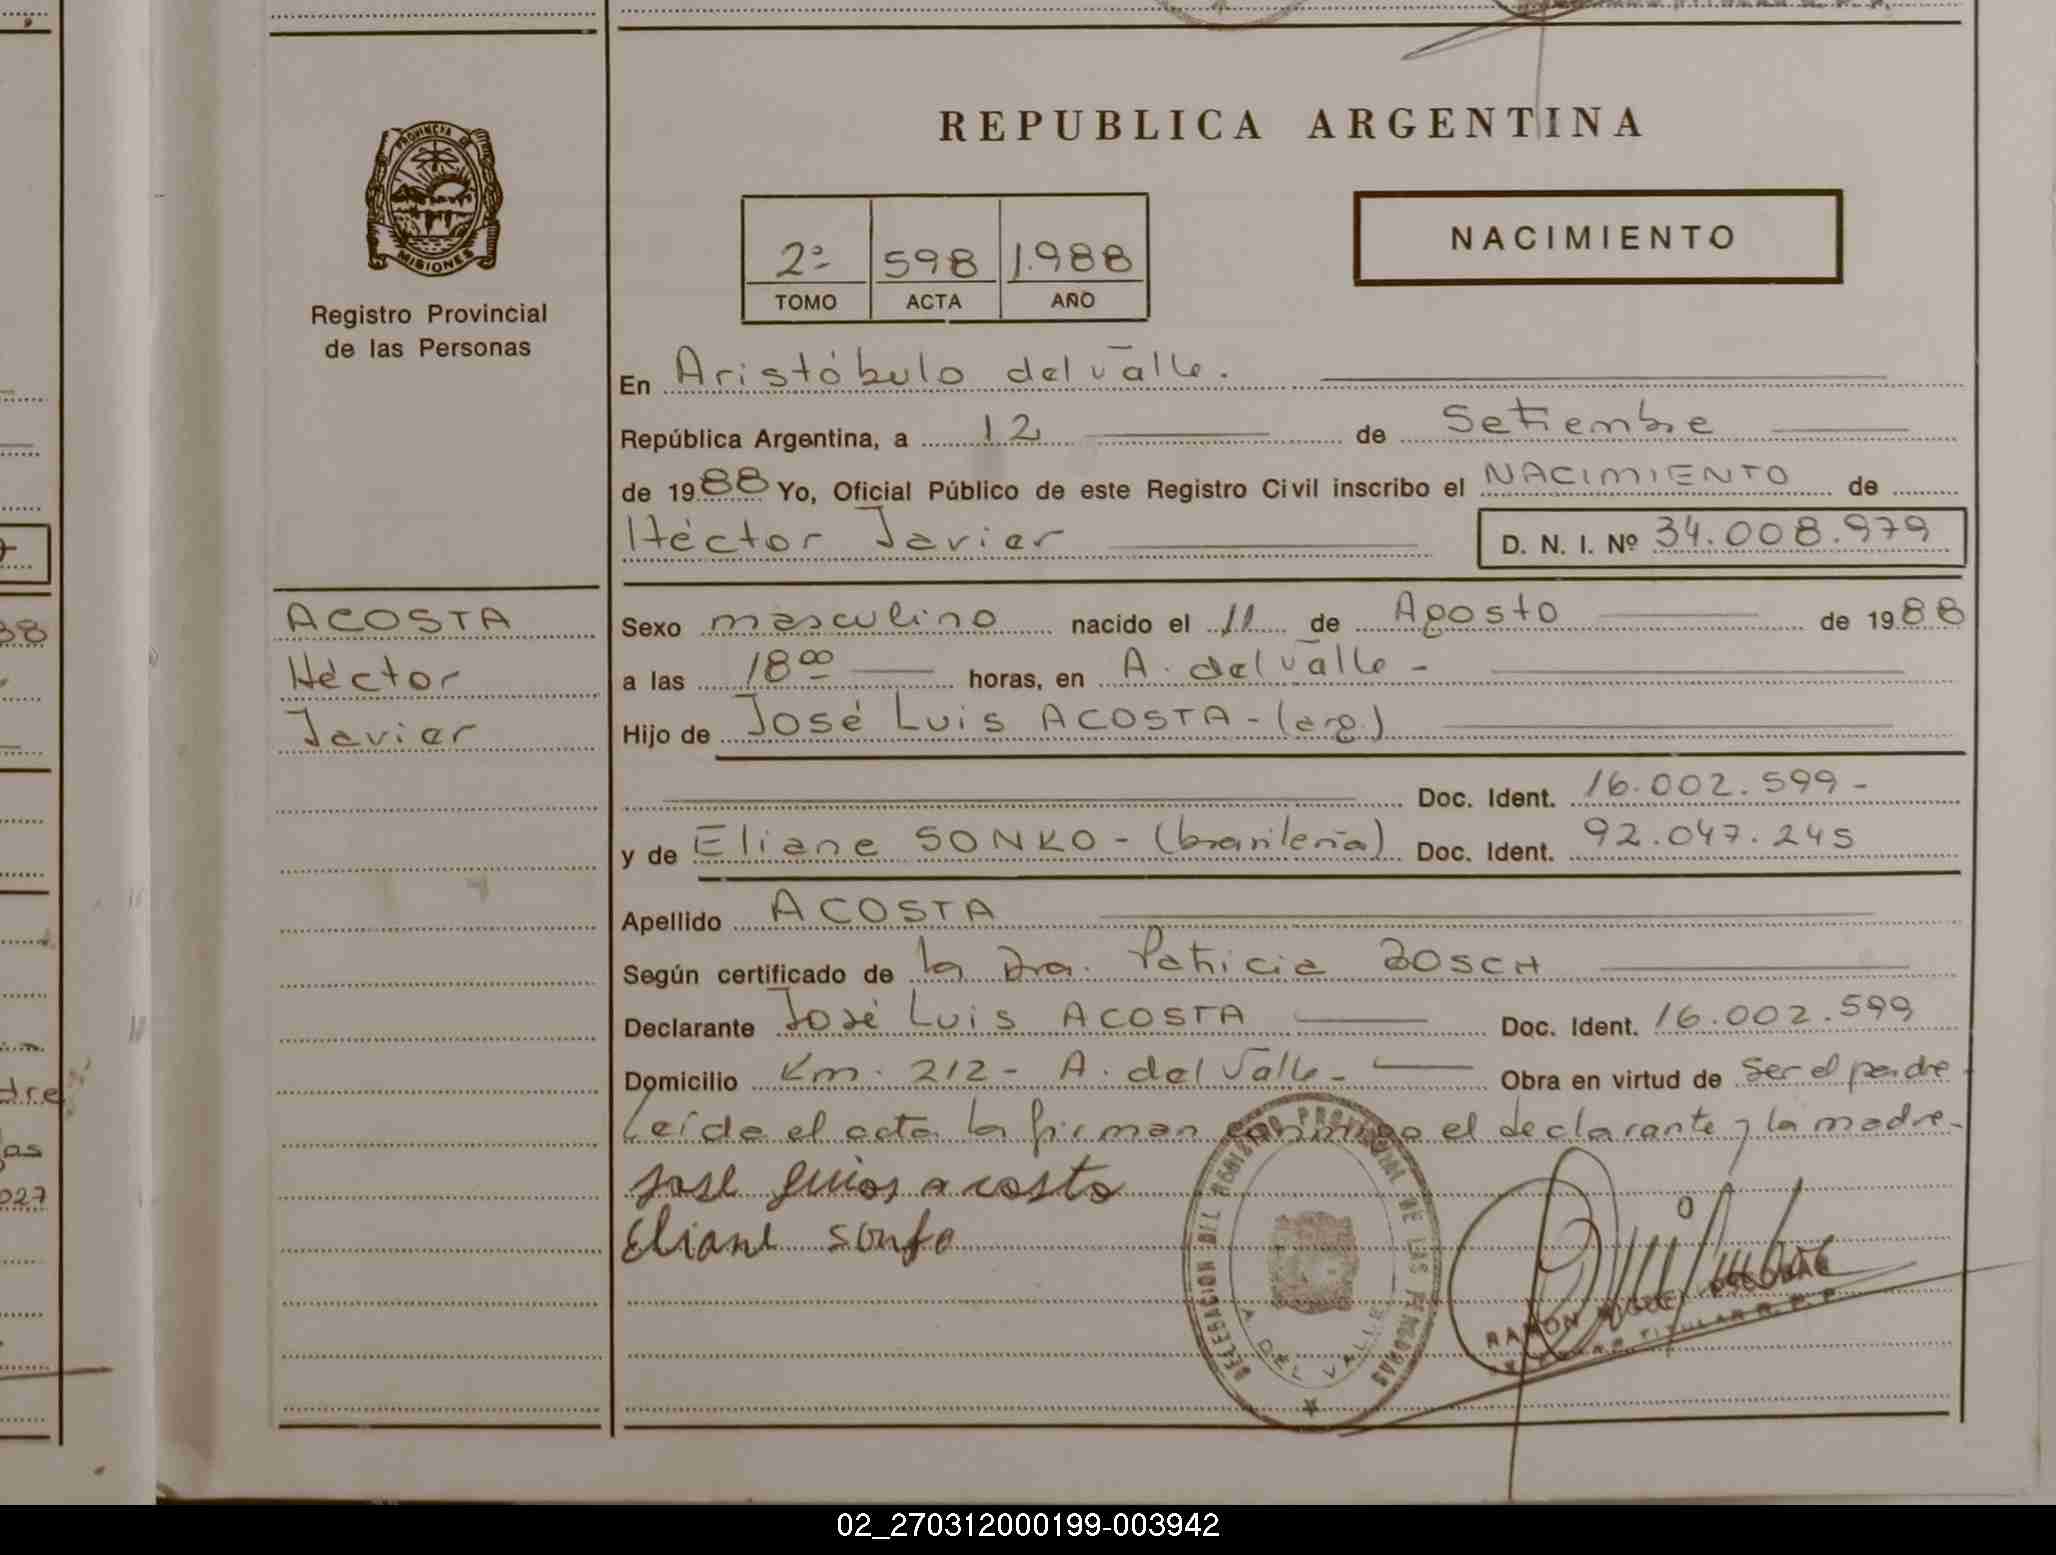 REPUBLICA ARGENTINA
PROVINCIA DE
MISIONES
Registro Provincial
de las Personas
2º 598 1.988
TOMO ACTA AÑO
NACIMIENTO
En Aristóbulo del Valle.
República Argentina, a 12 de Setiembre
de 1988 Yo, Oficial Público de este Registro Civil inscribo el NACIMIENTO de
Héctor Javier D. N. I. Nº 34.008.979
ACOSTA
Héctor
Javier
Sexo masculino nacido el 11 de Agosto de 1988
a las 18 00 horas, en A. del Valle -
Hijo de José Luis ACOSTA - (arg.)
Doc. Ident. 16.002.599 -
y de Eliane SONKO - (brasileña) Doc. Ident. 92.047.245
Apellido ACOSTA
Según certificado de la Dra. Patricia BOSCH
Declarante José Luis ACOSTA Doc. Ident. 16.002.599
Domicilio Km. 212 - A. del Valle - Obra en virtud de ser el padre
Leída el acta la firman conmigo el declarante y la madre -
José Luios acosta
Eliane sonko
DELEGACION DEL REGISTRO PROVINCIAL DE LAS PERSONAS
A. DEL VALLE
RAMON MIGUEL ESCOBAR
TITULAR R. P. P.
38
dre
las
027
02_270312000199-003942